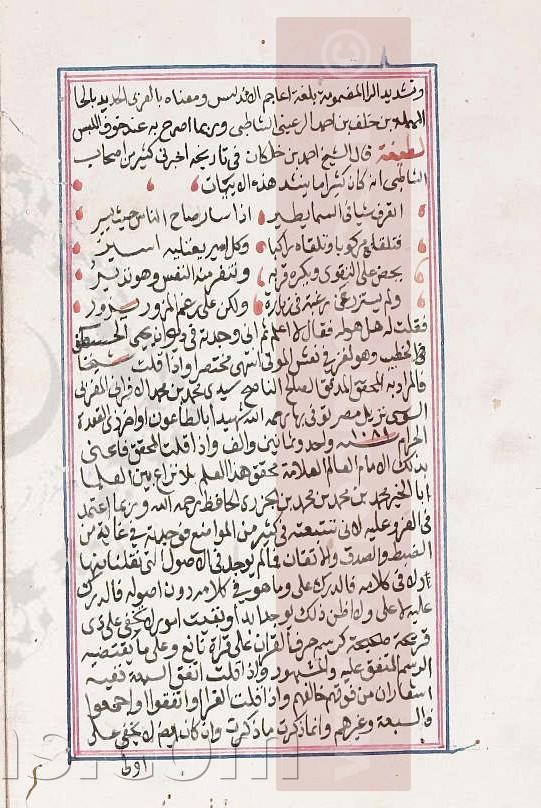 وتشديد الراء المضمومة بلغة اعاجم الاندلس ومعناه بالعربي الحديد بالحا
المهملة بن خلف بن احمد الرعيني الشاطبي وربما اصرح به عند خوف اللبس
لطيفة قال الشيخ احمد بن خلكان في تاريخه اخبرني كثير من اصحاب
الشاطبي انه كان كثيرا ما ينشد هذه الابيات
اتعرف شيئا في السما يطير اذا سار صاح الناس حيث يسير
فتلقاه مركوبا وتلقاه راكبا وكل امير يعتليه اسير
يحض على التقوى ويكره قربه وتنفر منه النفس وهو نذير
ولم يستزر عن رغبة في زيارة ولكن على رغم المزور يزور
فقلت له هل هو له فقال لا اعلم ثم اني وجدته في ديوان يحيى الحسكفي
الخطيب وهو لغز في نعش الموتى انتهى مختصرا واذا قلت شيخنا
فالمراد به المحقق المدقق الصالح الناصح سيدي محمد بن محمد الافراني المغربي
السوسي نزيل مصر توفي بها رحمه الله شهيدا بالطاعون اواخر ذي القعدة
الحرام سنة ١٠٨١ واحد وثمانين والف واذا قلت المحقق فاعني
بذلك الامام العالم العلامة محقق هذا العلم بلا نزاع بين العلما
ابا الخير محمد بن محمد بن محمد بن الجزري الحافظ رحمه الله وربما اعتمد
في العزو عليه لاني تتبعته في كثير من المواضع فوجدته في غاية من
الضبط والصدق والاتقان فما لم يوجد في الاصول التي نقلنا منها
ولا في كلامه فالدرك علي وما هو في كلامه دون اصوله فالدرك
عليه لا علي ولا اظن ذلك يوجد ابدا وبقيت امور لا تخفى على ذي
قريحة كرسم حرف القرآن على قراة نافع وعلى ما يقتضيه
الرسم المتفق عليه والمشهور واذا قلت اتفق السبعة ففيه
اشعار ان من فوقهم خالفهم واذا قلت القرا او اتفقوا او اجمعوا
فالسبعة وغيرهم وانما ذكرت ما ذكرت وان كان لا يخفى على
اولى